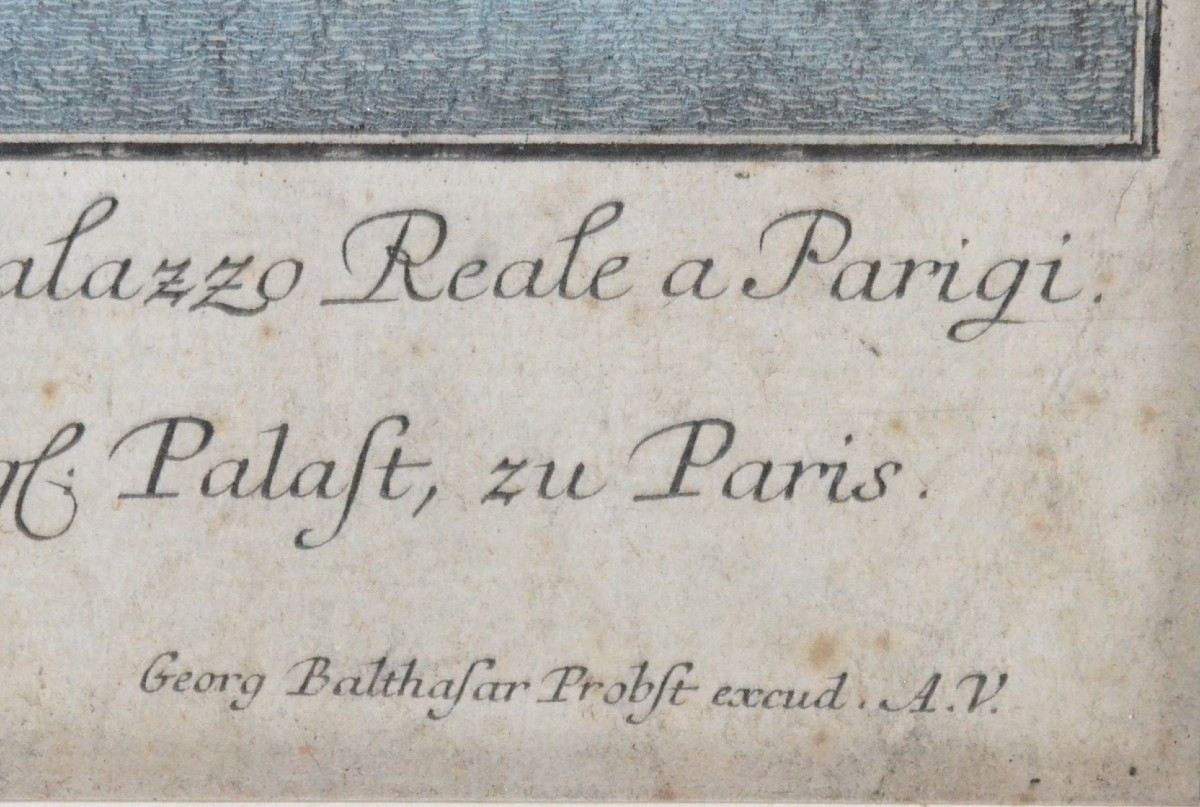 alazzo Reale a Parigi.
gl: Palaſt, zu Paris.
Georg Balthaſar Probſt excud. A.V.